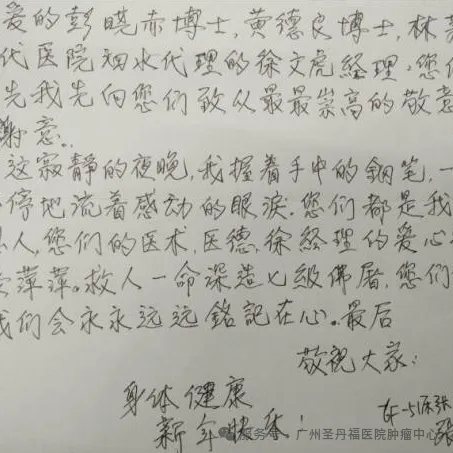 爱的彭晓赤博士,黄德良博士,林
代医院细水代理的徐文虎经理,您们
先我先向您们致以最最崇高的敬意
谢意。
这寂静的夜晚,我握着手中的鋼笔,一
停地流着感动的眼淚.您们都是我
人,您们的医术,医德,徐经理的爱心
萍萍。救人一命深造七級佛屠,您们
我们会永永远远銘記在心。最后
敬祝大家:
身体健康
新年快乐!
女一51床张
服务号 · 广州圣丹福医院肿瘤中心
张